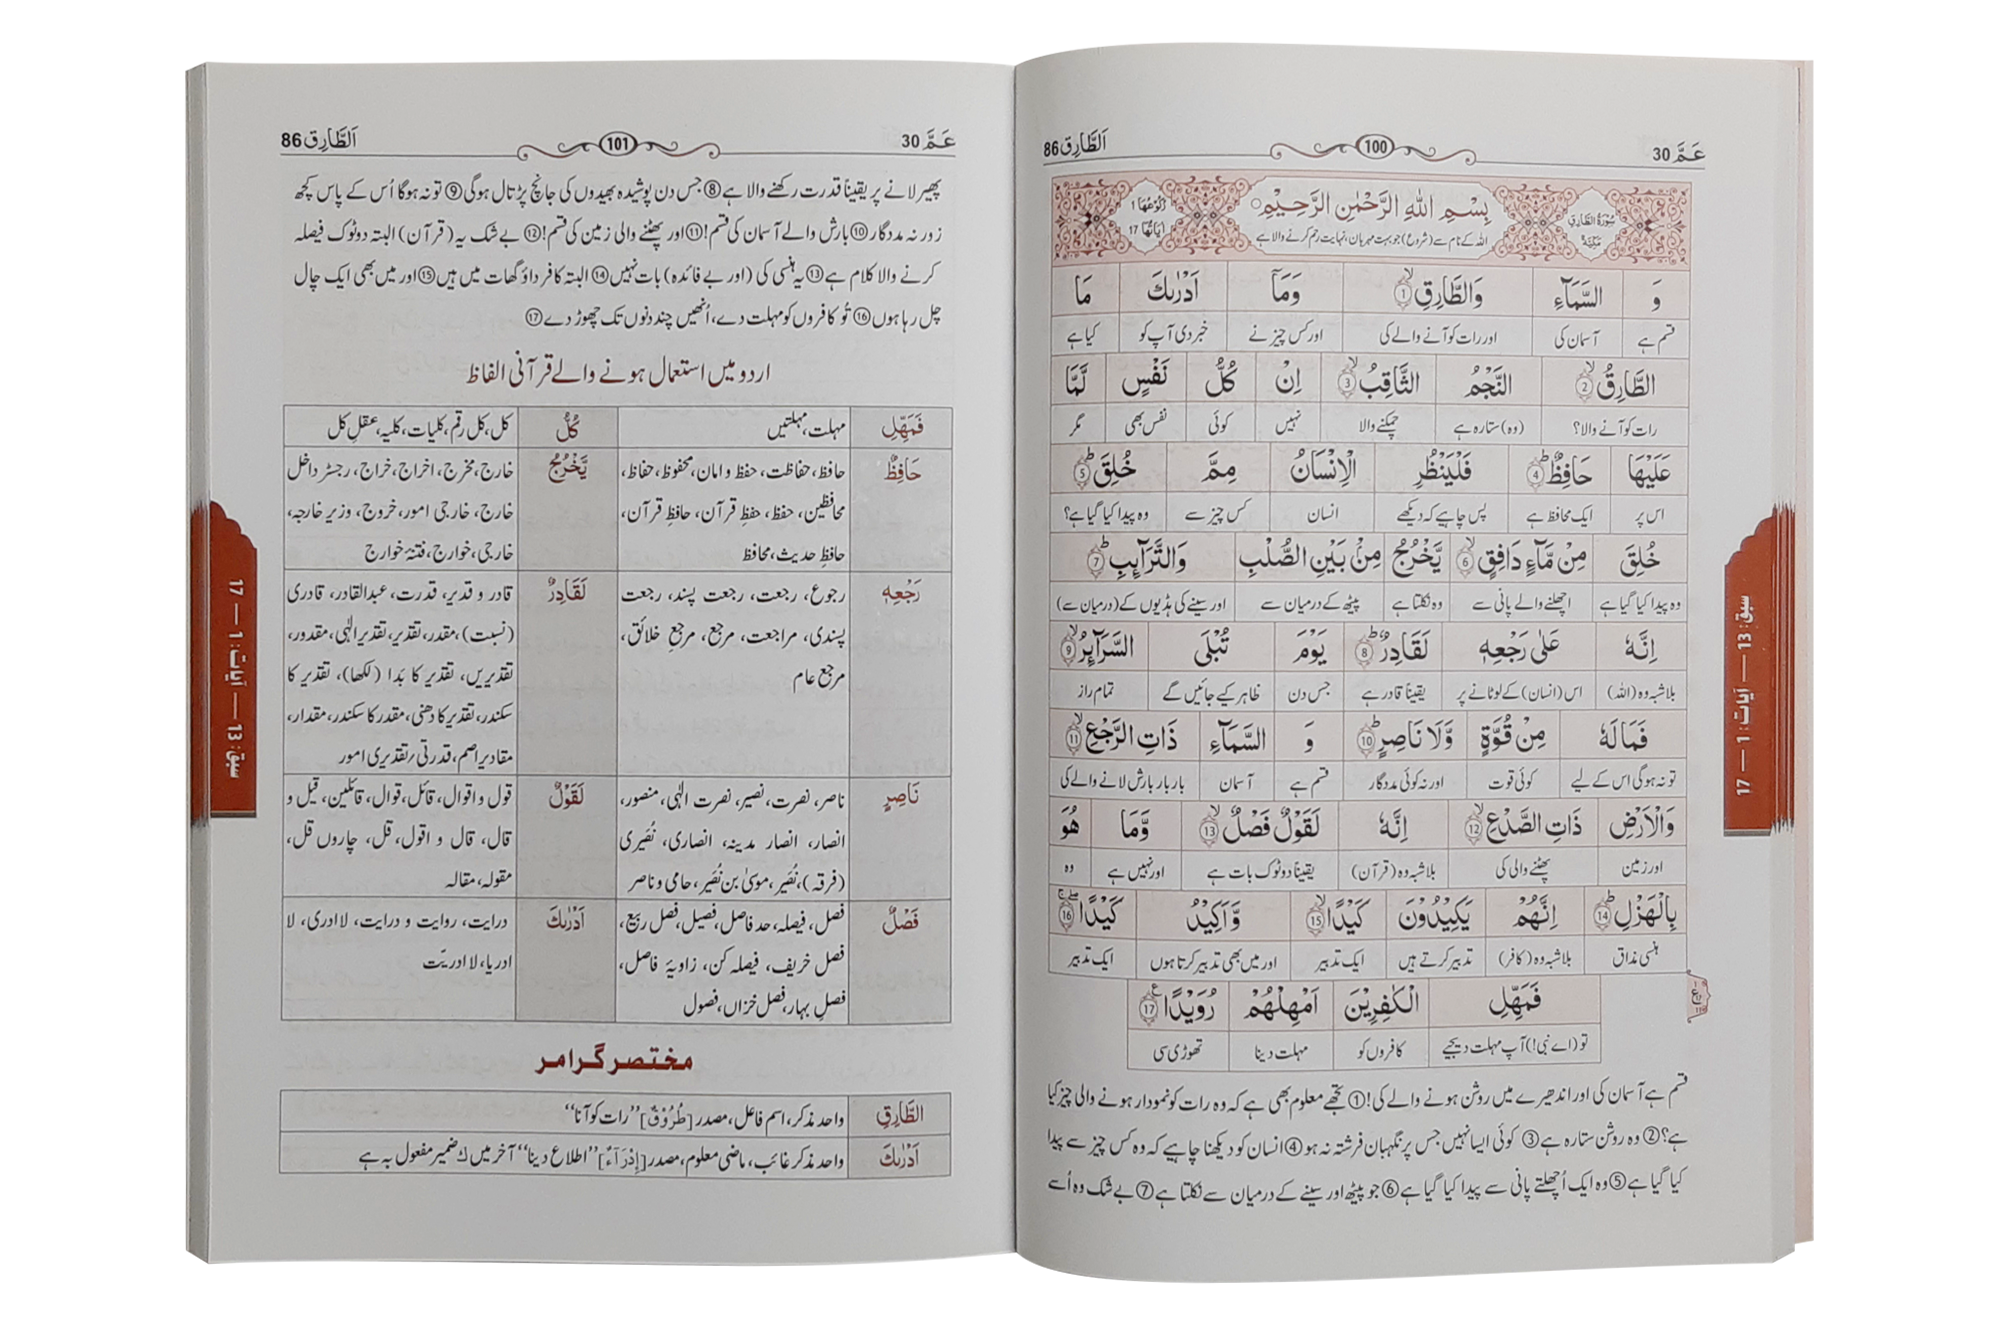 عَمَّ 30
100
اَلطَّارِق 86
سُوْرَةُ الطَّارِقِ مَكِّيَّةٌ
بِسْمِ اللّٰهِ الرَّحْمٰنِ الرَّحِيْمِ
رُكُوْعُهَا 1
اٰيَاتُهَا 17
اللہ کے نام سے (شروع) جو بہت مہربان، نہایت رحم کرنے والا ہے
وَ السَّمَآءِ وَالطَّارِقِ ① وَمَآ اَدْرٰىكَ مَا
قسم ہے آسمان کی اور رات کو آنے والے کی اور کس چیز نے خبر دی آپ کو کیا ہے
الطَّارِقُ ② النَّجْمُ الثَّاقِبُ ③ اِنْ كُلُّ نَفْسٍ لَّمَّا
رات کو آنے والا؟ (وہ) ستارہ ہے چمکنے والا نہیں کوئی نفس بھی مگر
عَلَيْهَا حَافِظٌ ④ فَلْيَنْظُرِ الْاِنْسَانُ مِمَّ خُلِقَ ⑤
اس پر ایک محافظ ہے پس چاہیے کہ دیکھے انسان کس چیز سے وہ پیدا کیا گیا ہے؟
خُلِقَ مِنْ مَّآءٍ دَافِقٍ ⑥ يَّخْرُجُ مِنْۢ بَيْنِ الصُّلْبِ وَالتَّرَآئِبِ ⑦
وہ پیدا کیا گیا ہے اچھلنے والے پانی سے وہ نکلتا ہے پیٹھ کے درمیان سے اور سینے کی ہڈیوں کے (درمیان سے)
اِنَّهٗ عَلٰى رَجْعِهٖ لَقَادِرٌ ⑧ يَوْمَ تُبْلَى السَّرَآئِرُ ⑨
بلاشبہ وہ (اللہ) اس (انسان) کے لوٹانے پر یقیناً قادر ہے جس دن ظاہر کیے جائیں گے تمام راز
فَمَا لَهٗ مِنْ قُوَّةٍ وَّلَا نَاصِرٍ ⑩ وَ السَّمَآءِ ذَاتِ الرَّجْعِ ⑪
تو نہ ہوگی اس کے لیے کوئی قوت اور نہ کوئی مددگار قسم ہے آسمان بار بار بارش لانے والے کی
وَالْاَرْضِ ذَاتِ الصَّدْعِ ⑫ اِنَّهٗ لَقَوْلٌ فَصْلٌ ⑬ وَّمَا هُوَ
اور زمین پھٹنے والی کی بلاشبہ وہ (قرآن) یقیناً دو ٹوک بات ہے اور نہیں ہے وہ
بِالْهَزْلِ ⑭ اِنَّهُمْ يَكِيْدُوْنَ كَيْدًا ⑮ وَّاَكِيْدُ كَيْدًا ⑯
ہنسی مذاق بلاشبہ وہ (کافر) تدبیر کرتے ہیں ایک تدبیر اور میں بھی تدبیر کرتا ہوں ایک تدبیر
فَمَهِّلِ الْكٰفِرِيْنَ اَمْهِلْهُمْ رُوَيْدًا ⑰
تو (اے نبی!) آپ مہلت دیجیے کافروں کو مہلت دینا تھوڑی سی
قسم ہے آسمان کی اور اندھیرے میں روشن ہونے والے کی! ① تجھے معلوم بھی ہے کہ وہ رات کو نمودار ہونے والی چیز کیا
ہے؟ ② وہ روشن ستارہ ہے ③ کوئی ایسا نہیں جس پر نگہبان فرشتہ نہ ہو ④ انسان کو دیکھنا چاہیے کہ وہ کس چیز سے پیدا
کیا گیا ہے ⑤ وہ ایک اُچھلتے پانی سے پیدا کیا گیا ہے ⑥ جو پیٹھ اور سینے کے درمیان سے نکلتا ہے ⑦ بے شک وہ اُسے
سبق: 13 — آیات: 1 — 17
عَمَّ 30
101
اَلطَّارِق 86
پھیر لانے پر یقیناً قدرت رکھنے والا ہے ⑧ جس دن پوشیدہ بھیدوں کی جانچ پڑتال ہوگی ⑨ تو نہ ہوگا اُس کے پاس کچھ
زور نہ مددگار ⑩ بارش والے آسمان کی قسم! ⑪ اور پھٹنے والی زمین کی قسم! ⑫ بے شک یہ (قرآن) البتہ دو ٹوک فیصلہ
کرنے والا کلام ہے ⑬ یہ ہنسی کی (اور بے فائدہ) بات نہیں ⑭ البتہ کافر داؤ گھات میں ہیں ⑮ اور میں بھی ایک چال
چل رہا ہوں ⑯ تُو کافروں کو مہلت دے، اُنھیں چند دنوں تک چھوڑ دے ⑰
اردو میں استعمال ہونے والے قرآنی الفاظ
فَمَهِّلِ مہلت، مہلتیں
كُلُّ کل، کل رقم، کلیات، کلیہ، عقلِ کل
حَافِظٌ حافظ، حفاظت، حفظ و امان، محفوظ، حفاظ،
محافظین، حفظ، حفظِ قرآن، حافظِ قرآن،
حافظِ حدیث، محافظ
يَّخْرُجُ خارج، مخرج، اخراج، خراج، رجسٹر داخل
خارج، خارجی امور، خروج، وزیر خارجہ،
خارجی، خوارج، فتنۂ خوارج
رَجْعِهٖ رجوع، رجعت، رجعت پسند، رجعت
پسندی، مراجعت، مرجع، مرجعِ خلائق،
مرجع عام
لَقَادِرٌ قادر و قدیر، قدرت، عبدالقادر، قادری
(نسبت)، مقدر، تقدیر، تقدیر الٰہی، مقدور،
تقدیریں، تقدیر کا بدا (لکھا)، تقدیر کا
سکندر، تقدیر کا دھنی، مقدر کا سکندر، مقدار،
مقادیر اسم، قدرتی؍تقدیری امور
نَاصِرٍ ناصر، نصرت، نصیر، نصرت الٰہی، منصور،
انصار، انصار مدینہ، انصاری، نُصَیری
(فرقہ)، نُصَیر، موسیٰ بن نُصَیر، حامی و ناصر
لَقَوْلٌ قول و اقوال، قائل، قوال، قائلین، قیل و
قال، قال و اقول، قل، چاروں قل،
مقولہ، مقالہ
فَصْلٌ فصل، فیصلہ، حد فاصل، فصیل، فصل ربیع،
فصل خریف، فیصلہ کن، زاویۂ فاصل،
فصلِ بہار، فصل خزاں، فصول
اَدْرٰىكَ درایت، روایت و درایت، لا ادری، لا
ادریا، لا ادریت
مختصر گرامر
الطَّارِقِ واحد مذکر، اسم فاعل، مصدر [طُرُوْقٌ] ”رات کو آنا“
اَدْرٰىكَ واحد مذکر غائب، ماضی معلوم، مصدر [اِدْرَآءٌ] ”اطلاع دینا“ آخر میں كَ ضمیر مفعول بہ ہے
سبق: 13 — آیات: 1 — 17